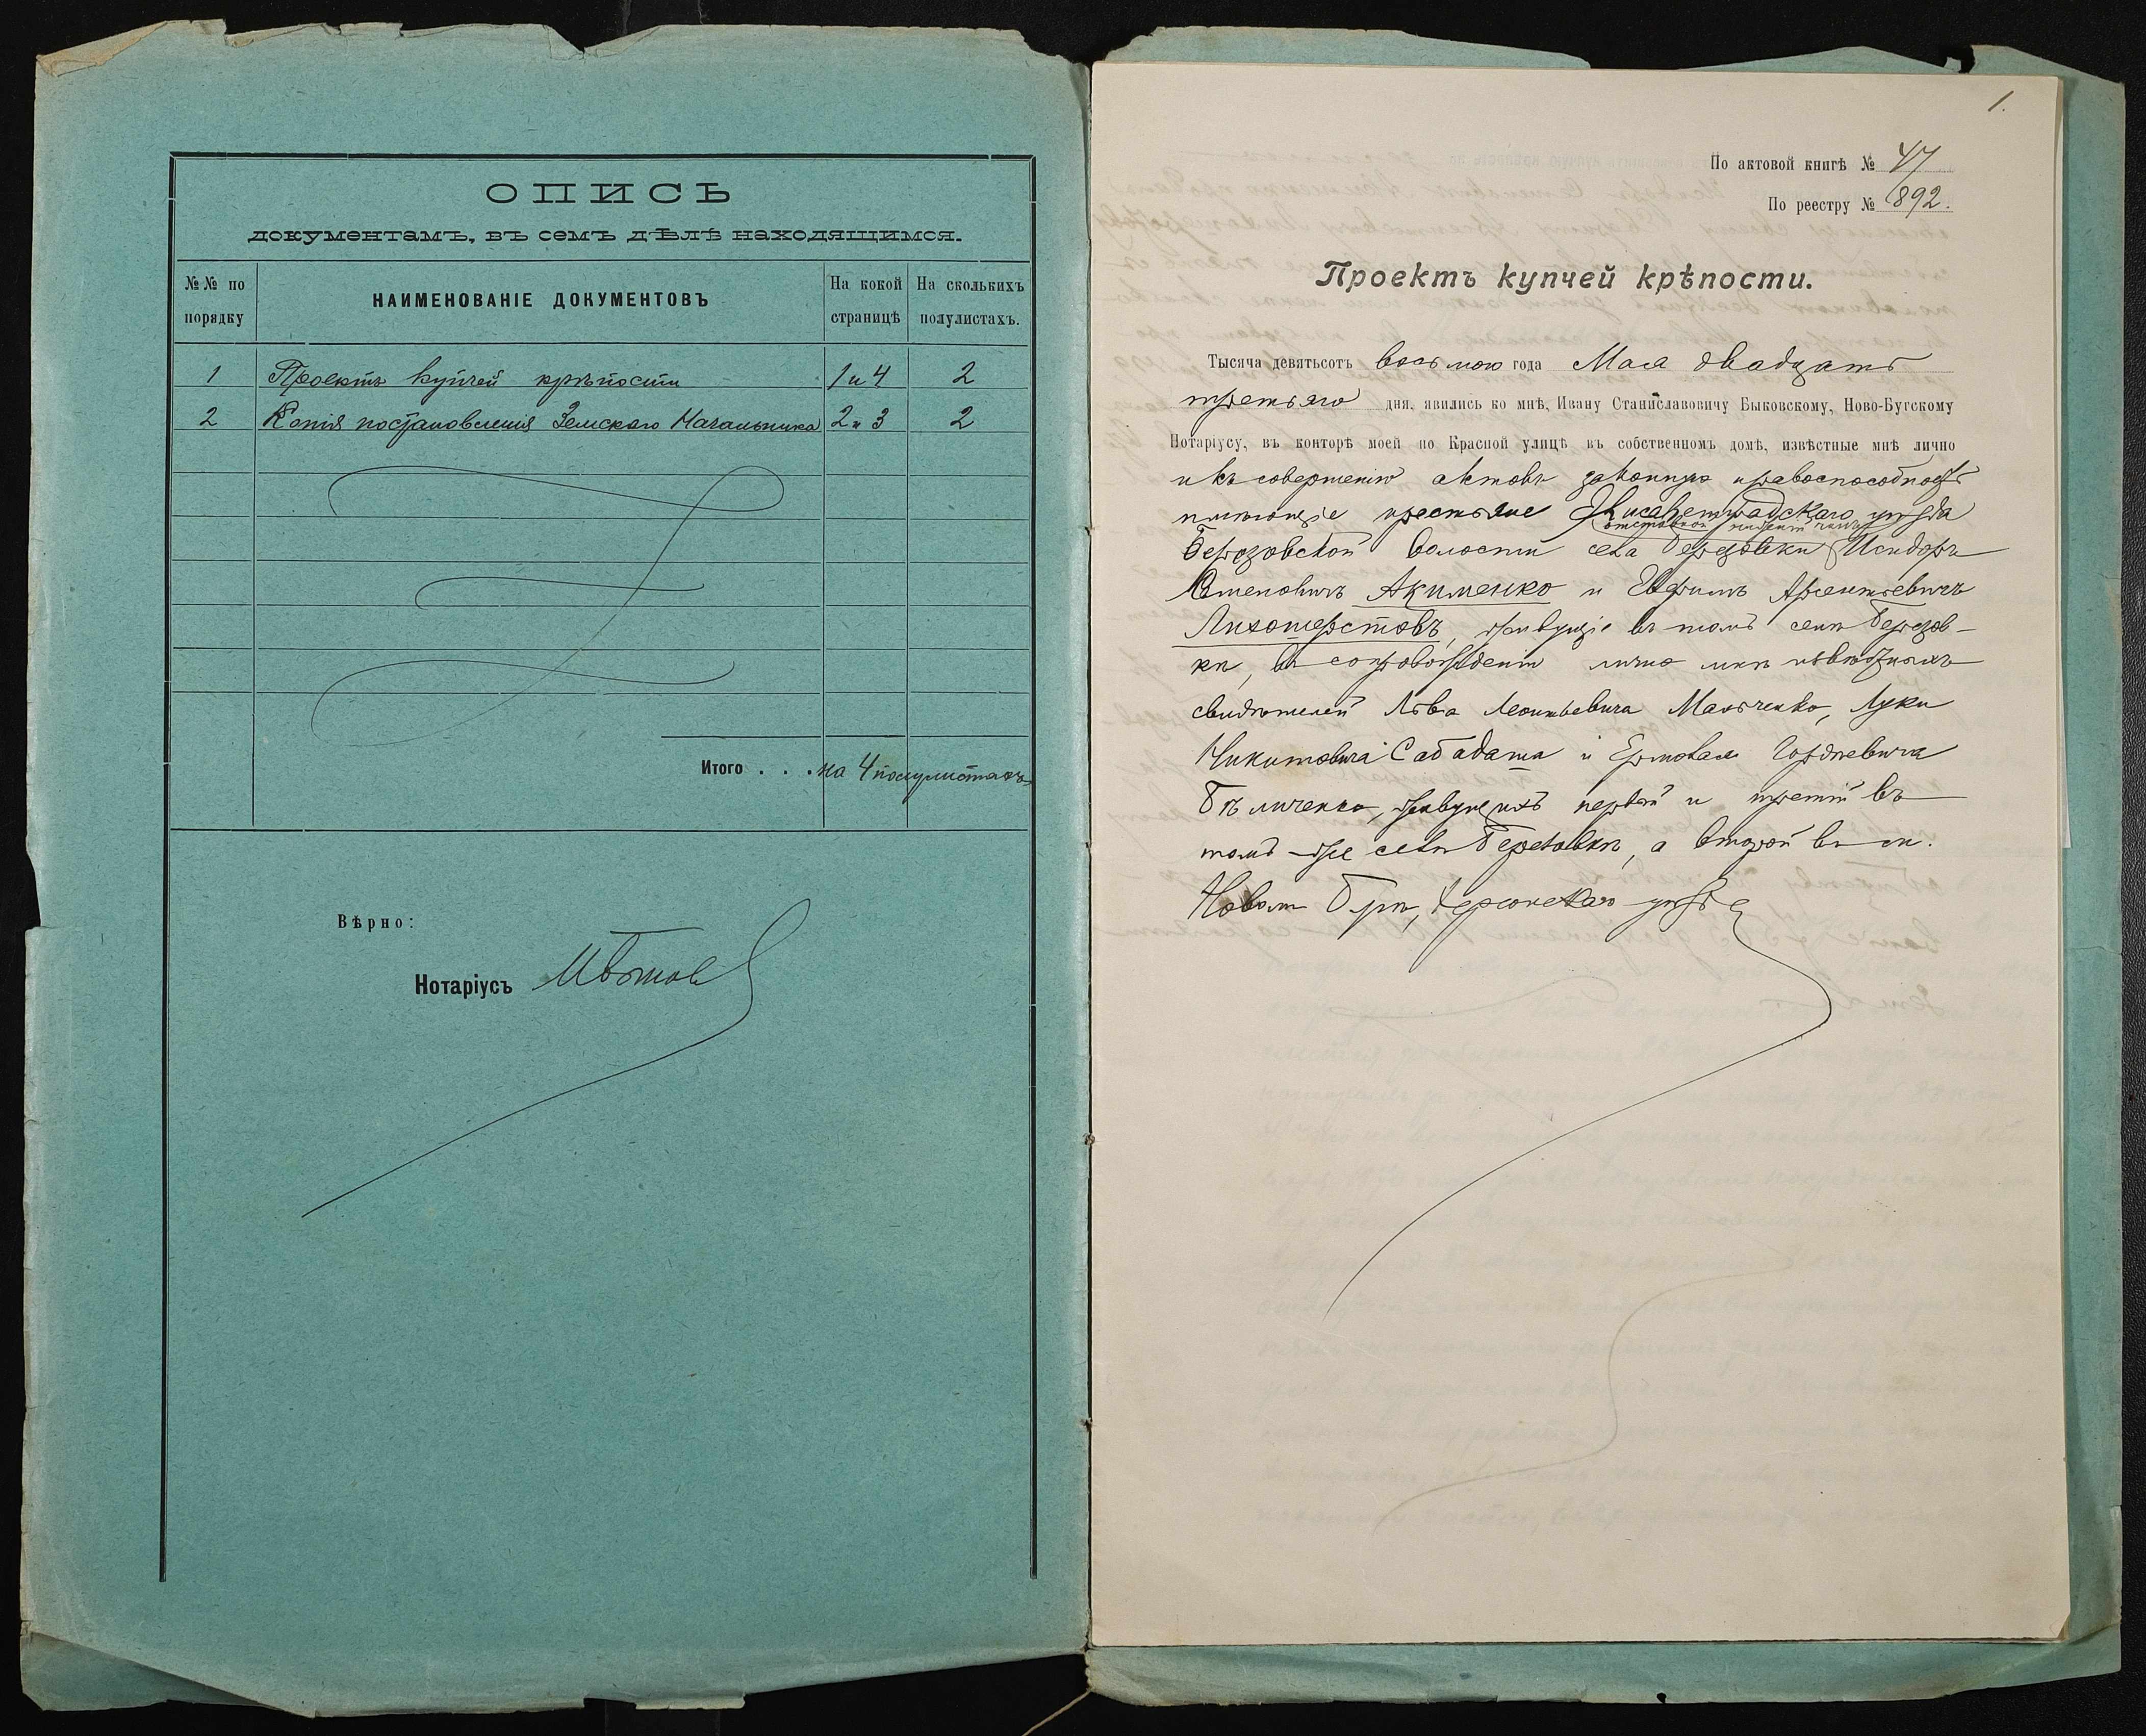 ОПИСЬ
документамъ, въ семъ дѣлѣ находящимся.
№№ по порядку
НАИМЕНОВАНІЕ ДОКУМЕНТОВЪ
На кокой страницѣ
На сколькихъ полулистахъ.
1 Проектъ купчей крѣпости 1 и 4 2
2 Копія постановленія Земскаго Начальника 2 и 3 2
Итого . . . на 4 полулистахъ
Вѣрно:
Нотаріусъ
1.
По актовой книгѣ № 47
По реестру № 892.
Проектъ купчей крѣпости.
Тысяча девятьсотъ восьмого года Мая двадцать
третьяго дня, явились ко мнѣ, Ивану Станиславовичу Быковскому, Ново-Бугскому
Нотаріусу, въ конторѣ моей по Красной улицѣ въ собственномъ домѣ, извѣстные мнѣ лично
и къ совершенію актовъ законную правоспособность
имѣющіе крестьяне Елисаветградскаго уѣзда
Березовской волости села Березовки Исидоръ
Акименко и Ефимъ Арсентьевичъ
Лихошерстовъ, живущіе въ томъ селѣ Березов-
кѣ, въ сопровожденіи лично мнѣ извѣстныхъ
свидѣтелей Льва Леонтьевича Мальченко, Луки
Никитовича Сабадаша и Ермолая Гордѣевича
Бѣличенко, живущихъ первый и третій въ
томъ же селѣ Березовкѣ, а второй въ м.
Новомъ Бугѣ, Херсонскаго уѣзда